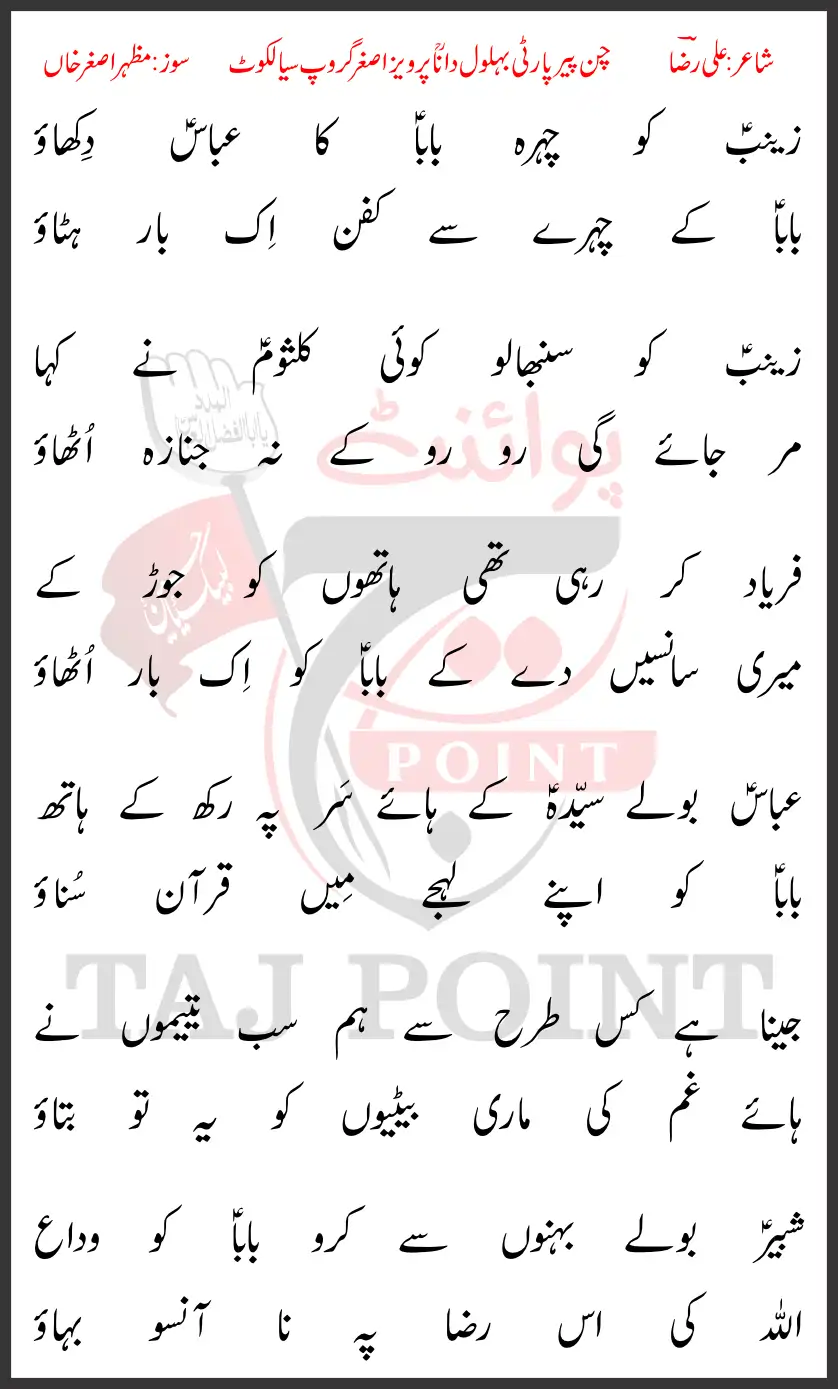 شاعر:علی رضاؔ چن پیر پارٹی بہلول داناؒ پرویز اصغر گروپ سیالکوٹ سوز:مظہر اصغر خاں
زینبؑ کو چہرہ باباؑ کا عباسؑ دِکھاؤ
باباؑ کے چہرے سے کفن اِک بار ہٹاؤ
زینبؑ کو سنبھالو کوئی کلثومؑ نے کہا
مر جائے گی رو رو کے نہ جنازہ اُٹھاؤ
فریاد کر رہی تھی ہاتھوں کو جوڑ کے
میری سانسیں دے کے باباؑ کو اِک بار اُٹھاؤ
عباسؑ بولے سیّدہؑ کے ہائے سَر پہ رکھ کے ہاتھ
باباؑ کو اپنے لہجے مِیں قرآن سُناؤ
جینا ہے کس طرح سے ہم سب یتیموں نے
ہائے غم کی ماری بیٹیوں کو یہ تو بتاؤ
شبیرؑ بولے بہنوں سے کرو باباؑ کو وداع
اللہ کی اس رضا پہ نا آنسو بہاؤ
المدد
یا ابالفضل العباسؑ
لبیک یا حسینؑ
پوائنٹ
تاج
POINT
TAJ POINT